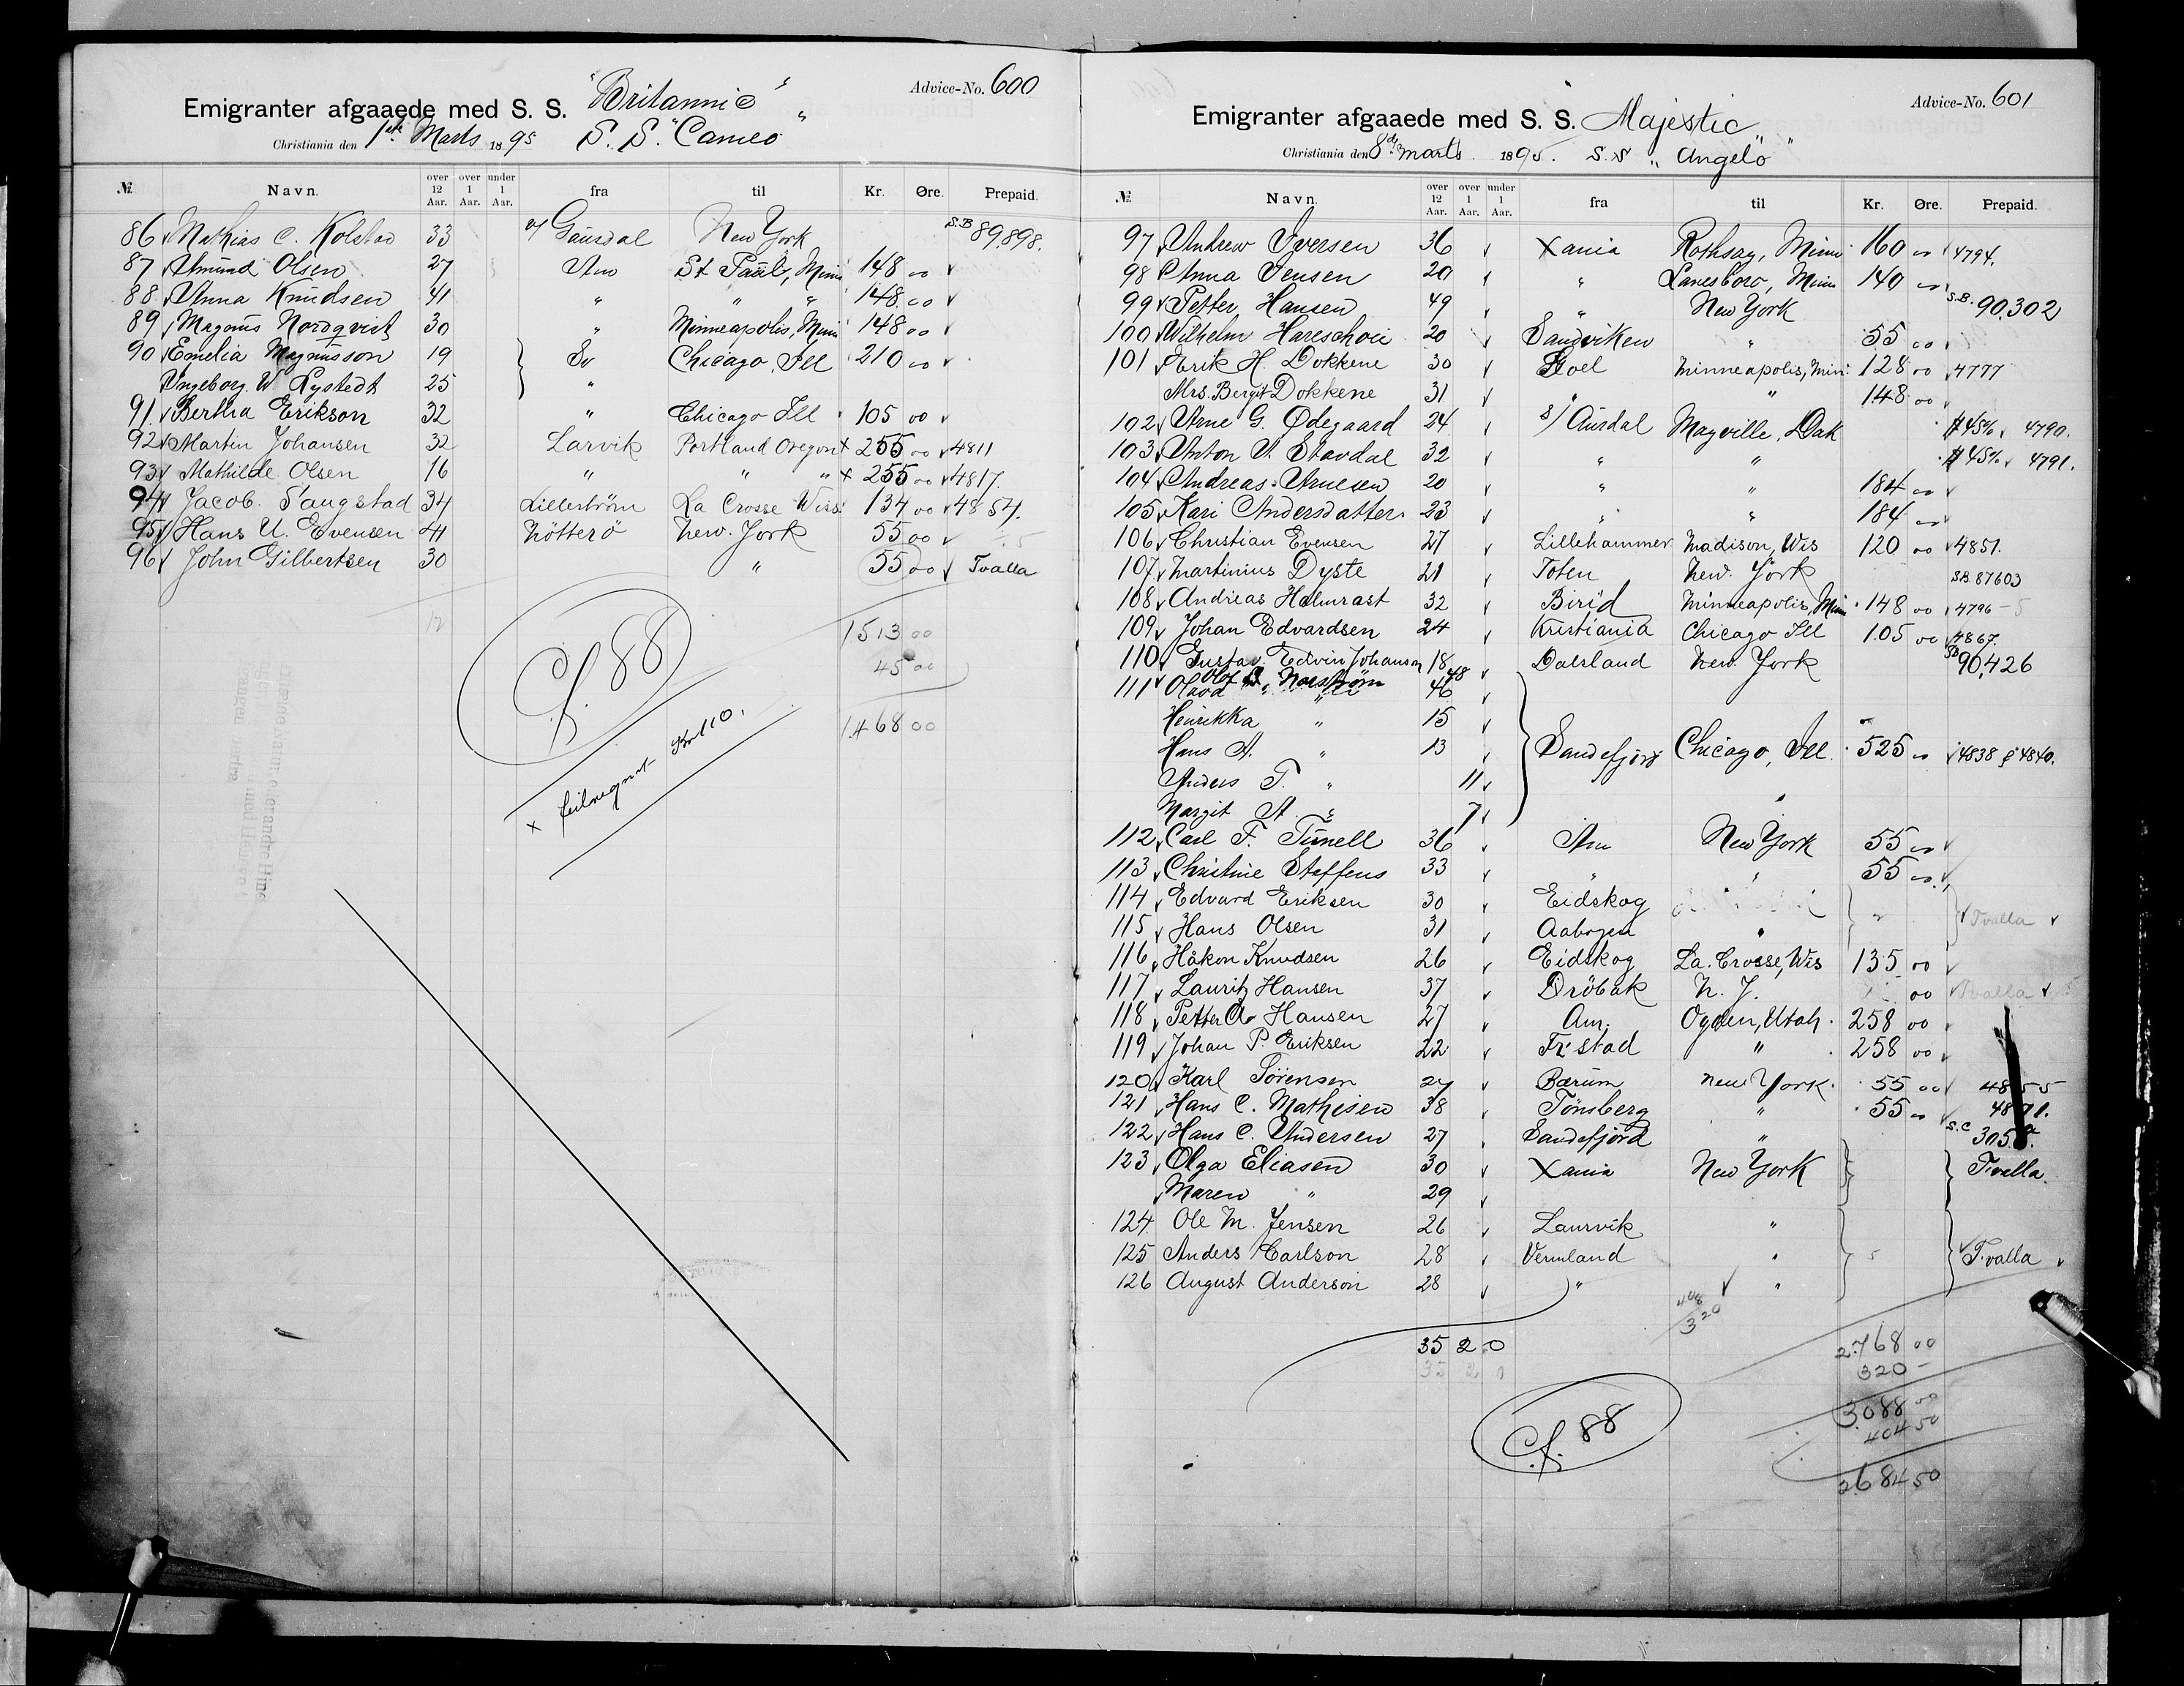 Advice-No. 600
Emigranter afgaaede med S. S. "Britannic"
Christiania den 1ste Marts 1895 S. S. "Cameo"
№ Navn. over 12 Aar. over 1 Aar. under 1 Aar. fra til Kr. Øre. Prepaid.
86 Mathias C. Kolstad 33 Gausdal New York S.B 89,898.
87 Amund Olsen 27 Am St Paul, Minn 148 00
88 Anna Knudsen 41 " " " 148 00
89 Magnus Nordqvist 30 " Minneapolis, Minn 148 00
90 Emelia Magnusson 19 Sv Chicago, Ill 210 00
Ingeborg W. Lystedt 25 "
91 Bertha Erikson 32 " Chicago Ill 105 00
92 Martin Johansen 32 Larvik Portland Oregon x 255 00 4811
93 Mathilde Olsen 16 " " " x 255 00 4817.
94 Jacob Saugstad 34 Lillestrøm La Crosse Wis. 134 00 4854.
95 Hans U. Evensen 41 Nötterö New. York 55 00
96 John Gilbertsen 30 " 55 00 Tvalla
12
1513 00
45 00
1468 00
Cf. 88
x feilregnet
Advice-No. 601
Emigranter afgaaede med S. S. Majestic "
Christiania den 8de marts 1895. S. S "Angelo"
№ Navn. over 12 Aar. over 1 Aar. under 1 Aar. fra til Kr. Øre. Prepaid.
97 Andrew Iversen 36 Xania Rothsay, Minn 160 00 4794.
98 Anna Jensen 20 " Lanesboro, Minn 140 00
99 Petter Hansen 49 " New York S.B. 90,302
100 Wilhelm Hareschou 20 Sandviken " 55 00
101 Erik H. Dokkene 30 Minneapolis, Min. 128 00 4777
Mrs. Bergit Dokkene 31 " " 148 00
102 Arne G. Ødegaard 24 S/ Aurdal Mayville, Dak 4790.
103 Anton A. Stavdal 32 " " 4791.
104 Andreas Arnesen 20 " " 184 00
105 Kari Andersdatter 23 " " 184 00
106 Christian Evensen 27 Lillehammer Madison, Wis 120 00 4851.
107 Martinius Dyste 21 Toten New. York S.B. 87603
108 Andreas Halmrast 32 Birid Minneapolis, Minn 148 00 4796
109 Johan Edvardsen 24 Kristiania Chicago Ill 105 00 4867.
110 Gustav Edvin Johanson 18 Dalsland New York SB 90,426
111 Olava " 46
Henrikka " 15
Hans A. " 13 Sandefjord Chicago, Ill. 525 00 4838 & 4840.
Anders T. " 11
Margit A. " 7
112 Carl F. Tunell 36 Am New York 55 00
113 Christine Steffens 33 " " 55 00
114 Edvard Eriksen 30 Eidskog
115 Hans Olsen 31 Aabogen " Tvalla
116 Håkon Knudsen 26 Eidskog La. Crosse, Wis 135 00
117 Lauritz Hansen 37 Dröbak N. Y. 00 Tvalla
118 Petter A Hansen 27 Am. Ogden, Utah. 258 00
119 Johan P. Eriksen 22 Fr.stad " 258 00
120 Karl Sörensen 27 Bærum New York. 55 00 4855
121 Hans C. Mathisen 38 Tönsberg " 55 00
122 Hans C. Andersen 27 Sandefjord " S.C
123 Olga Eliasen 30 Xania New York Tvalla.
Maren " 29
124 Ole M. Jensen 26 Laurvik "
125 Anders Carlson 28 Vermland " Tvalla
126 August Anderson 28 " "
320
35 2 0
35 2 0
2768 00
320 -
3088 00
404 50
2684 50
Cf. 88